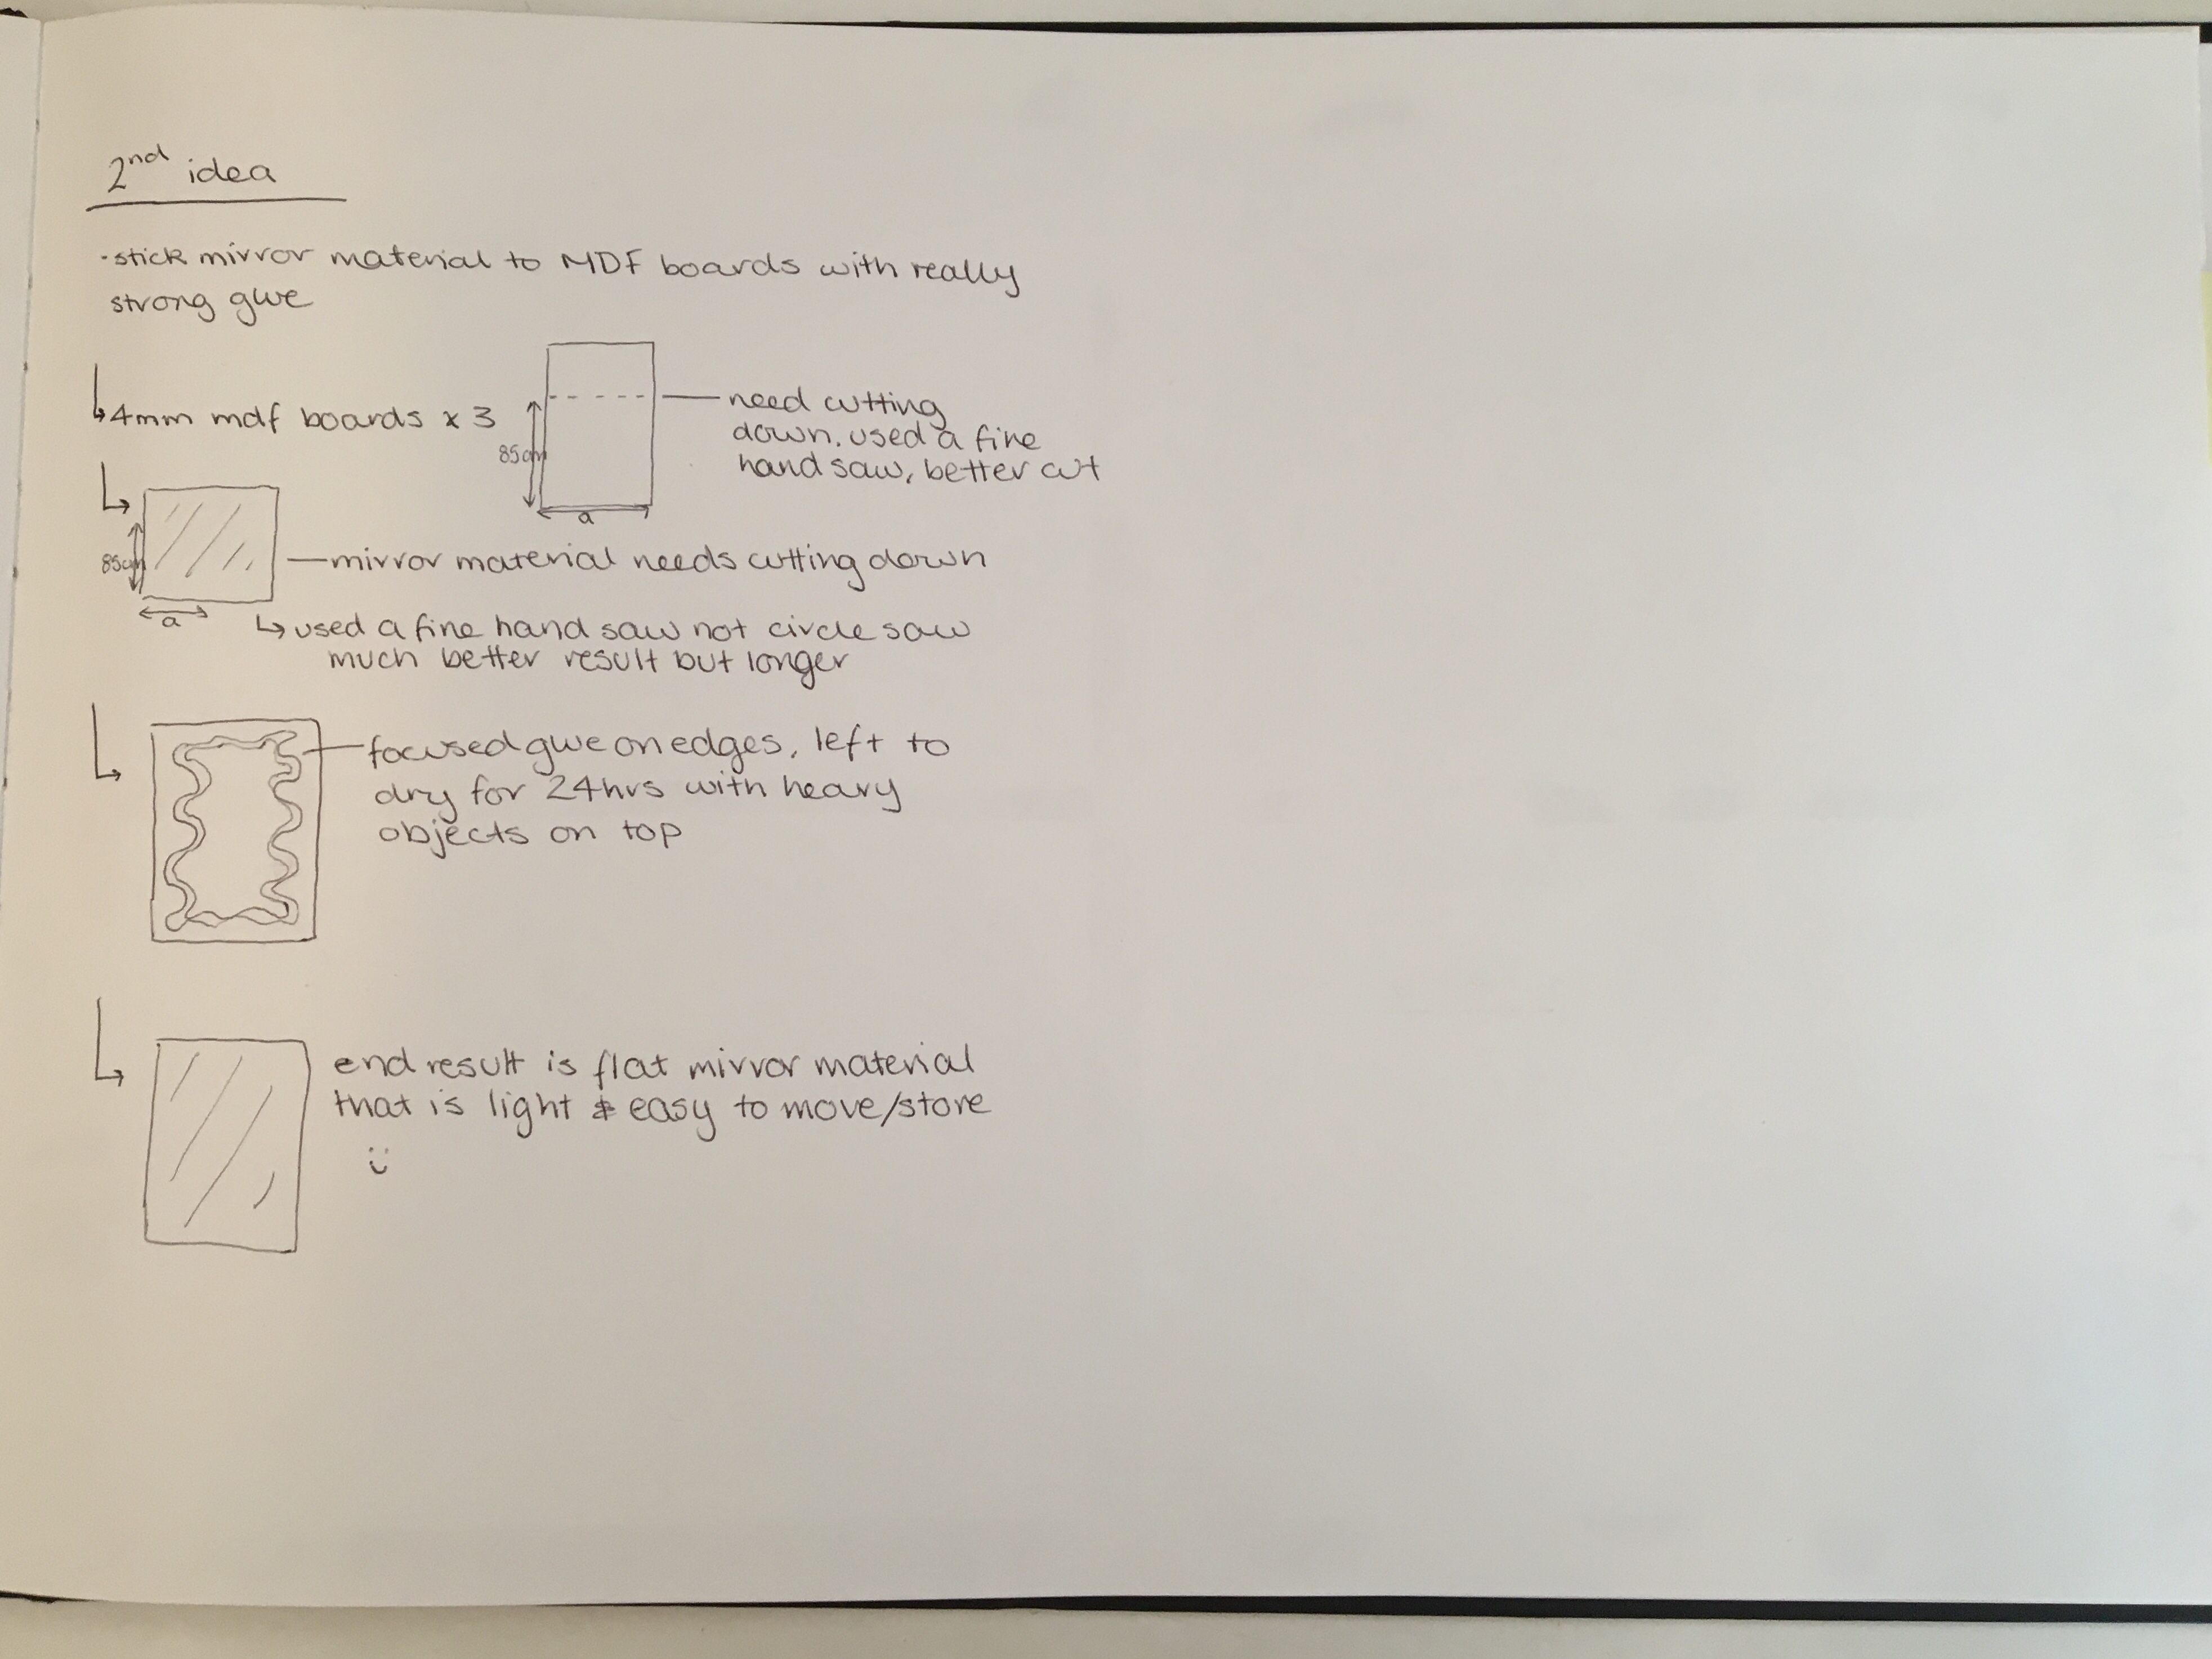 2nd idea
·stick mirror material to MDF boards with really
strong glue
4mm mdf boards x 3
85cm
a
need cutting
down. used a fine
hand saw, better cut
85cm
a
mirror material needs cutting down
used a fine hand saw not circle saw
much better result but longer
focused glue on edges, left to
dry for 24hrs with heavy
objects on top
end result is flat mirror material
that is light & easy to move/store